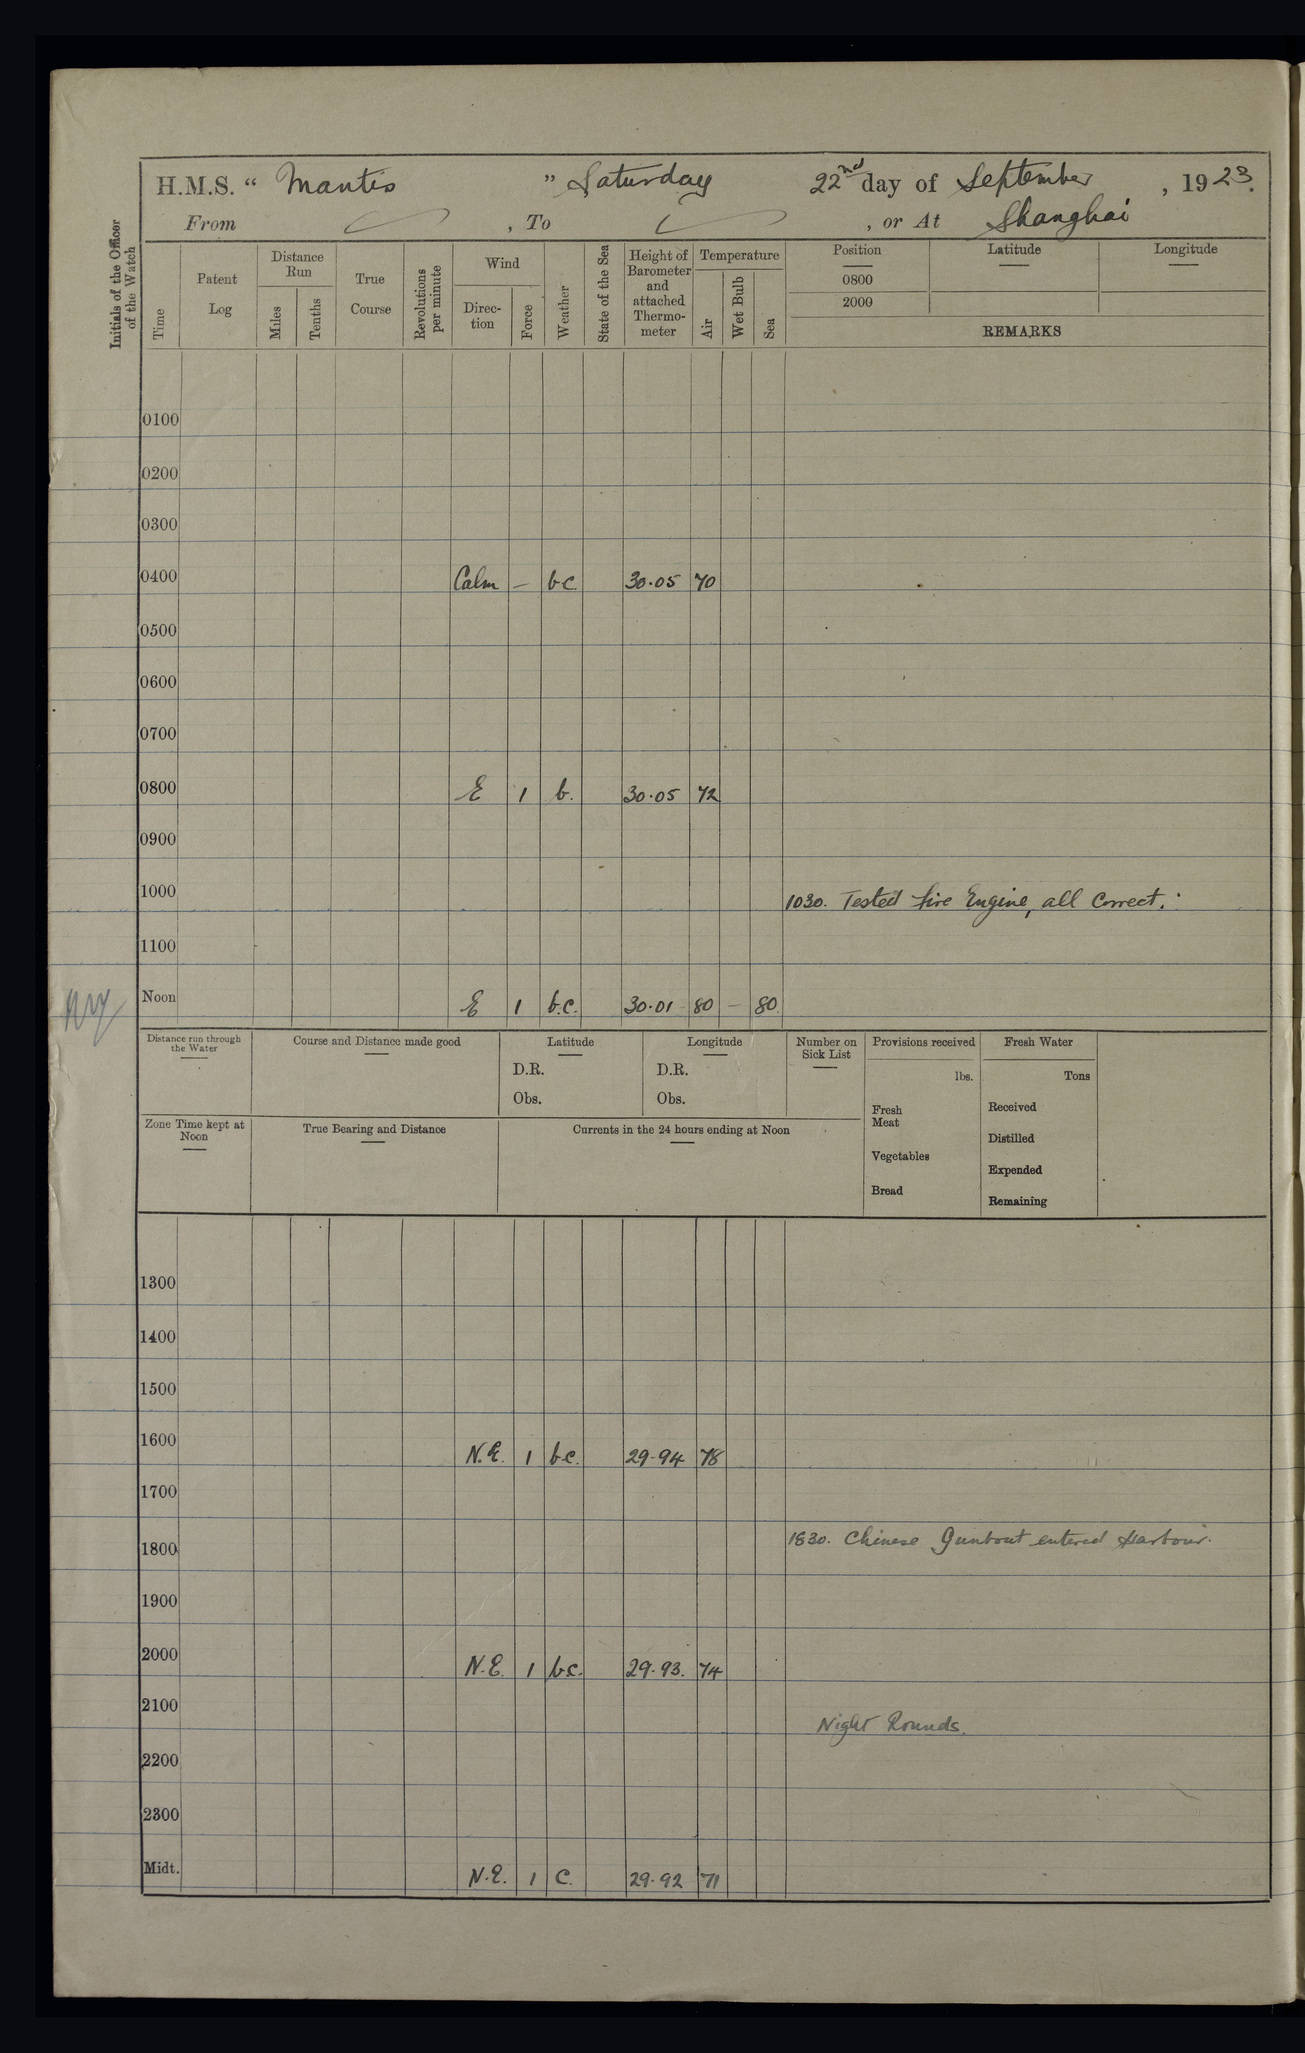 H.M.S. “ Mantis ” Saturday 22nd day of September , 1923.
From , To , or At Shanghai
Initials of the Officer of the Watch
Time
Patent Log
Distance Run
Miles
Tenths
True Course
Revolutions per minute
Wind
Direc-tion
Force
Weather
State of the Sea
Height of Barometer and attached Thermo-meter
Temperature
Air
Wet Bulb
Sea
Position Latitude Longitude
0800
2000
REMARKS
0100
0200
0300
0400 Calm – bc 30.05 70
0500
0600
0700
0800 E 1 b. 30.05 72
0900
1000 1030. Tested fire Engine, all Correct.
1100
Noon E 1 b.c. 30.01 80 – 80
Distance run through the Water
Course and Distance made good
Latitude
D.R.
Obs.
Longitude
D.R.
Obs.
Number on Sick List
Provisions received
lbs.
Fresh Meat
Vegetables
Bread
Fresh Water
Tons
Received
Distilled
Expended
Remaining
Zone Time kept at Noon
True Bearing and Distance
Currents in the 24 hours ending at Noon
1300
1400
1500
1600 N.E. 1 bc. 29.94 78
1700
1800 1830. Chinese Gunboat entered Harbour.
1900
2000 N.E. 1 bc. 29.93. 74
2100 Night Rounds.
2200
2300
Midt. N.E. 1 C. 29.92 71